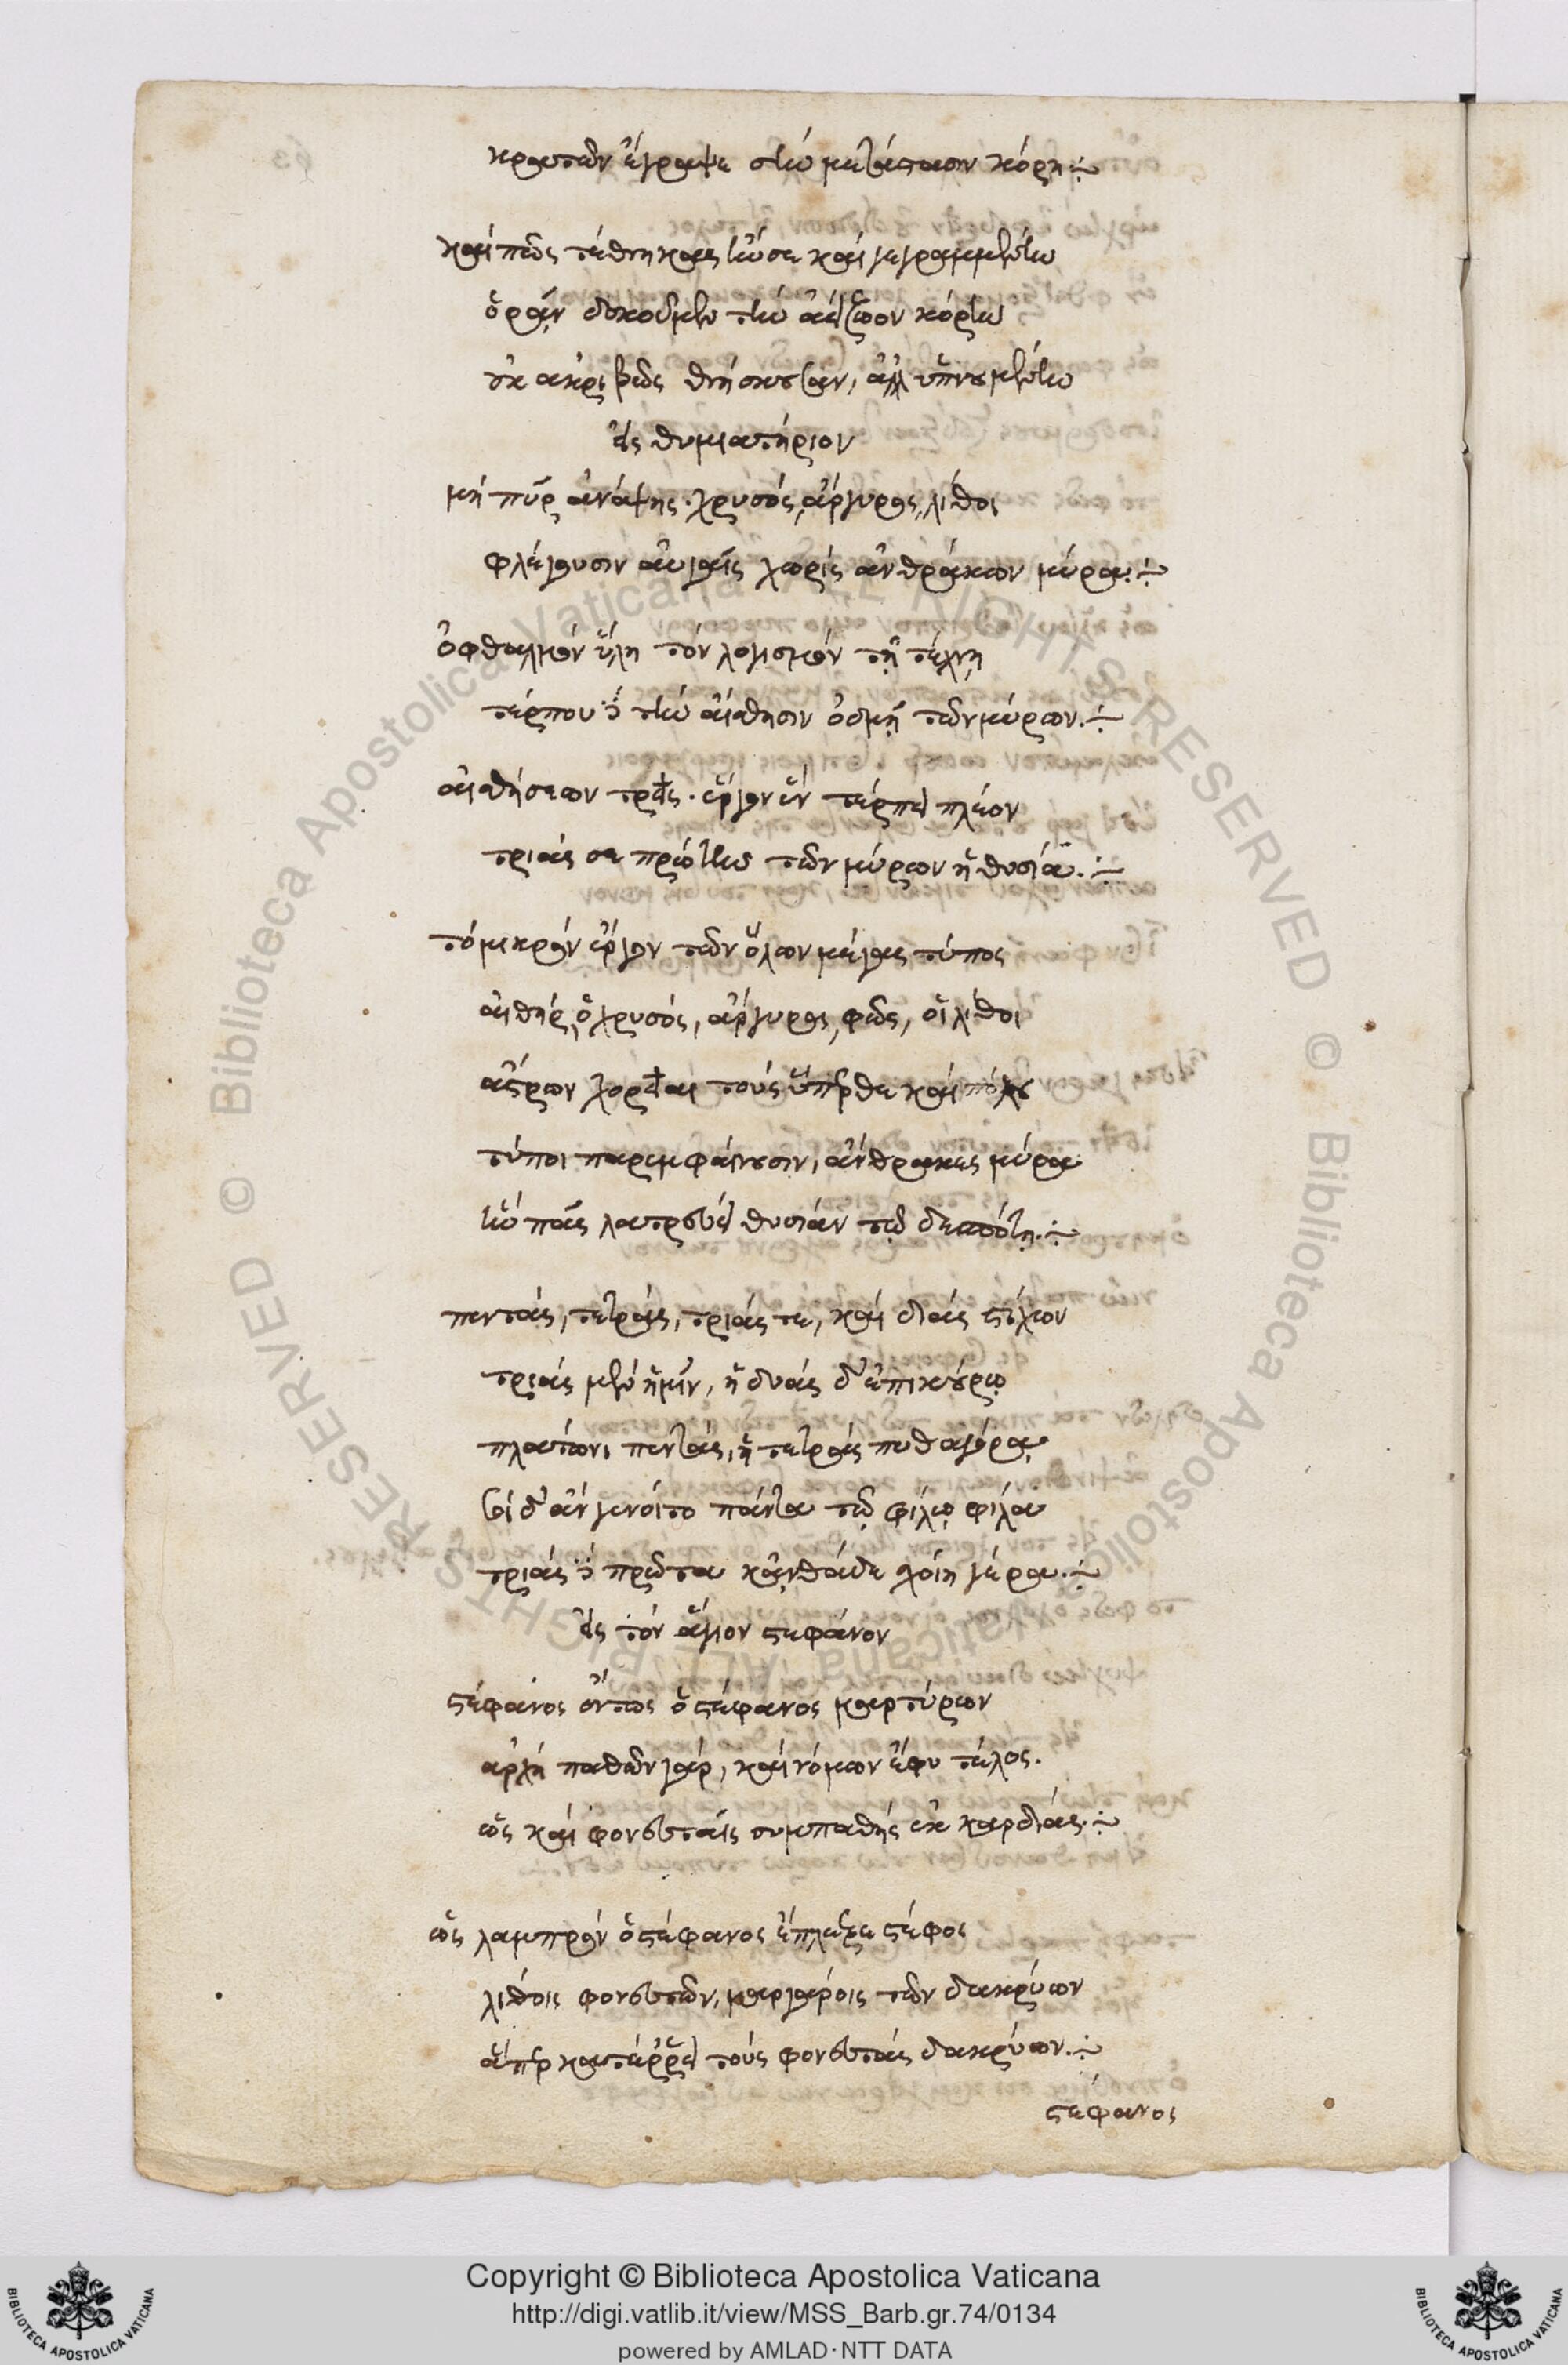 κρατῶν ἔγραψε σὴν μετάστασιν κόρη
καὶ πῶς τέθνηκας ἣν σε καὶ γεγραμμένην
ὁρᾶν δοκοῦμεν τὴν ἀείζωον κόρην
οὐκ ἀκριβῶς θνήσκουσαν, ἀλλ' ὑπνουμένην
εἰς θυμιατήριον
μὴ πῦρ ἀνάψῃς. χρυσός, ἄργυρος, λίθοι
φλέγουσιν αὐγαῖς χωρὶς ἀνθράκων μύρα.
ὀφθαλμὸν ὕλη τὸν λογισμὸν τῇ τέχνῃ
τέρπου δὲ τὴν αἴσθησιν ὀσμῇ τῶν μύρων.
αἰσθήσεων τρεῖς. ἔργον ἓν τέρπει πλέον
τριάς σε πρώτην τῶν μύρων ἡ θυσία.
τὸ μικρὸν ἔργον τῶν ὅλων μέγας τύπος
αἰθήρ, ὁ χρυσός, ἄργυρος, φῶς, οἱ λίθοι
ἄστρων χορεῖαι τοὺς ὕπερθε καὶ πόλου
τύποι παρεμφαίνουσιν, ἄνθρακες μύρα
ἣν πᾶς λατρεύει θυσίαν τῷ δεσπότῃ.
πεντάς, τετράς, τριάς τε, καὶ δυὰς στίχων
τριὰς μὲν ἡμῖν, ἡ δυὰς δ' ἐπικούρῳ
πλάτωνι πεντάς, ἡ τετρὰς πυθαγόρᾳ
σοὶ δ' ἂν γένοιτο πάντα τῷ φίλῳ φίλα
τριὰς δὲ πρῶτα κἀνθάδε σχοίη γέρα.
εἰς τὸν ἅγιον στεφάνον
στέφανος ὄντως ὁ στέφανος μαρτύρων
ἀρχὴ παθῶν γάρ, καὶ νόμων ἔφυ τέλος.
ὡς καὶ φονευταῖς συμπαθὴς ἐκ καρδίας.
ὡς λαμπρὸν ὁ στέφανος ἔπλεξε στέφος
λίθοις φονευτῶν, μαργάροις τῶν δακρύων
ἅπερ κατέρρει τοὺς φονευτὰς δακρύων.
στέφανος
Copyright © Biblioteca Apostolica Vaticana
http://digi.vatlib.it/view/MSS_Barb.gr.74/0134
powered by AMLAD·NTT DATA